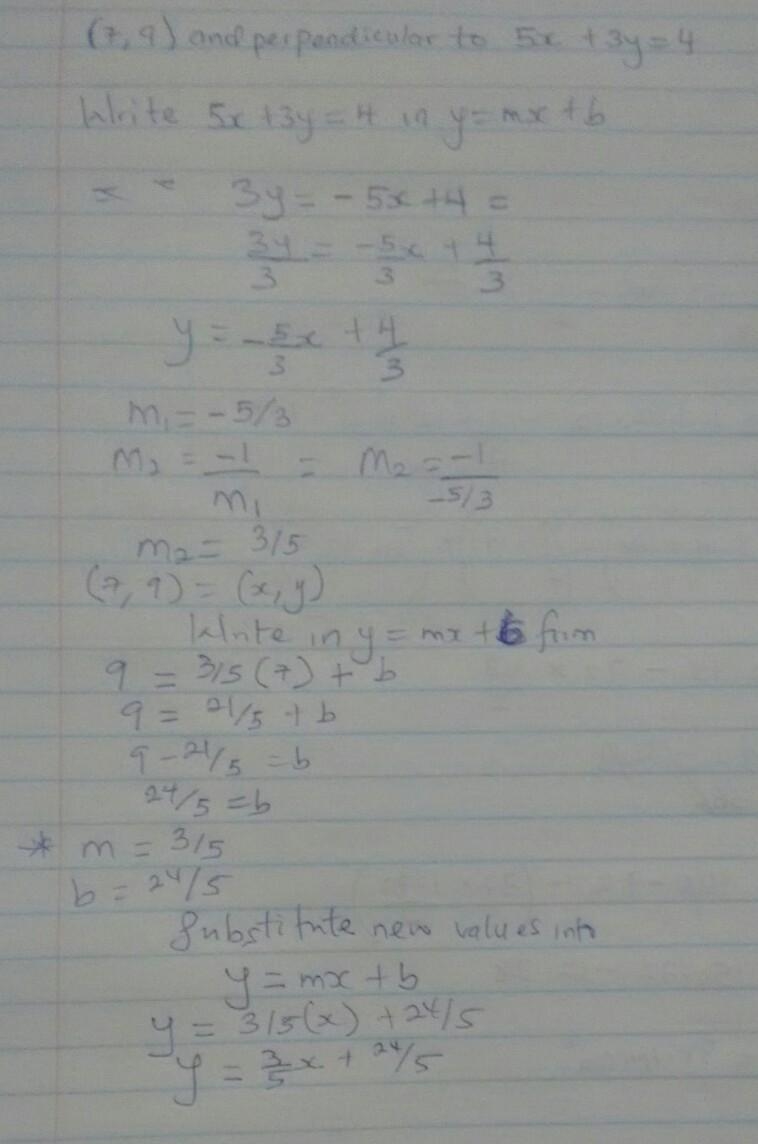 (7, 9) and perpendicular to 5x + 3y = 4
Write 5x + 3y = 4 in y = mx + b
3y = - 5x + 4 =
3y/3 = -5x/3 + 4/3
y = -5/3 x + 4/3
m₁ = - 5/3
m₂ = -1/m₁ = m₂ = -1/-5/3
m₂ = 3/5
(7, 9) = (x, y)
Write in y = mx + b form
9 = 3/5 (7) + b
9 = 21/5 + b
9 - 21/5 = b
24/5 = b
* m = 3/5
b = 24/5
Substitute new values into
y = mx + b
y = 3/5 (x) + 24/5
y = 3/5 x + 24/5